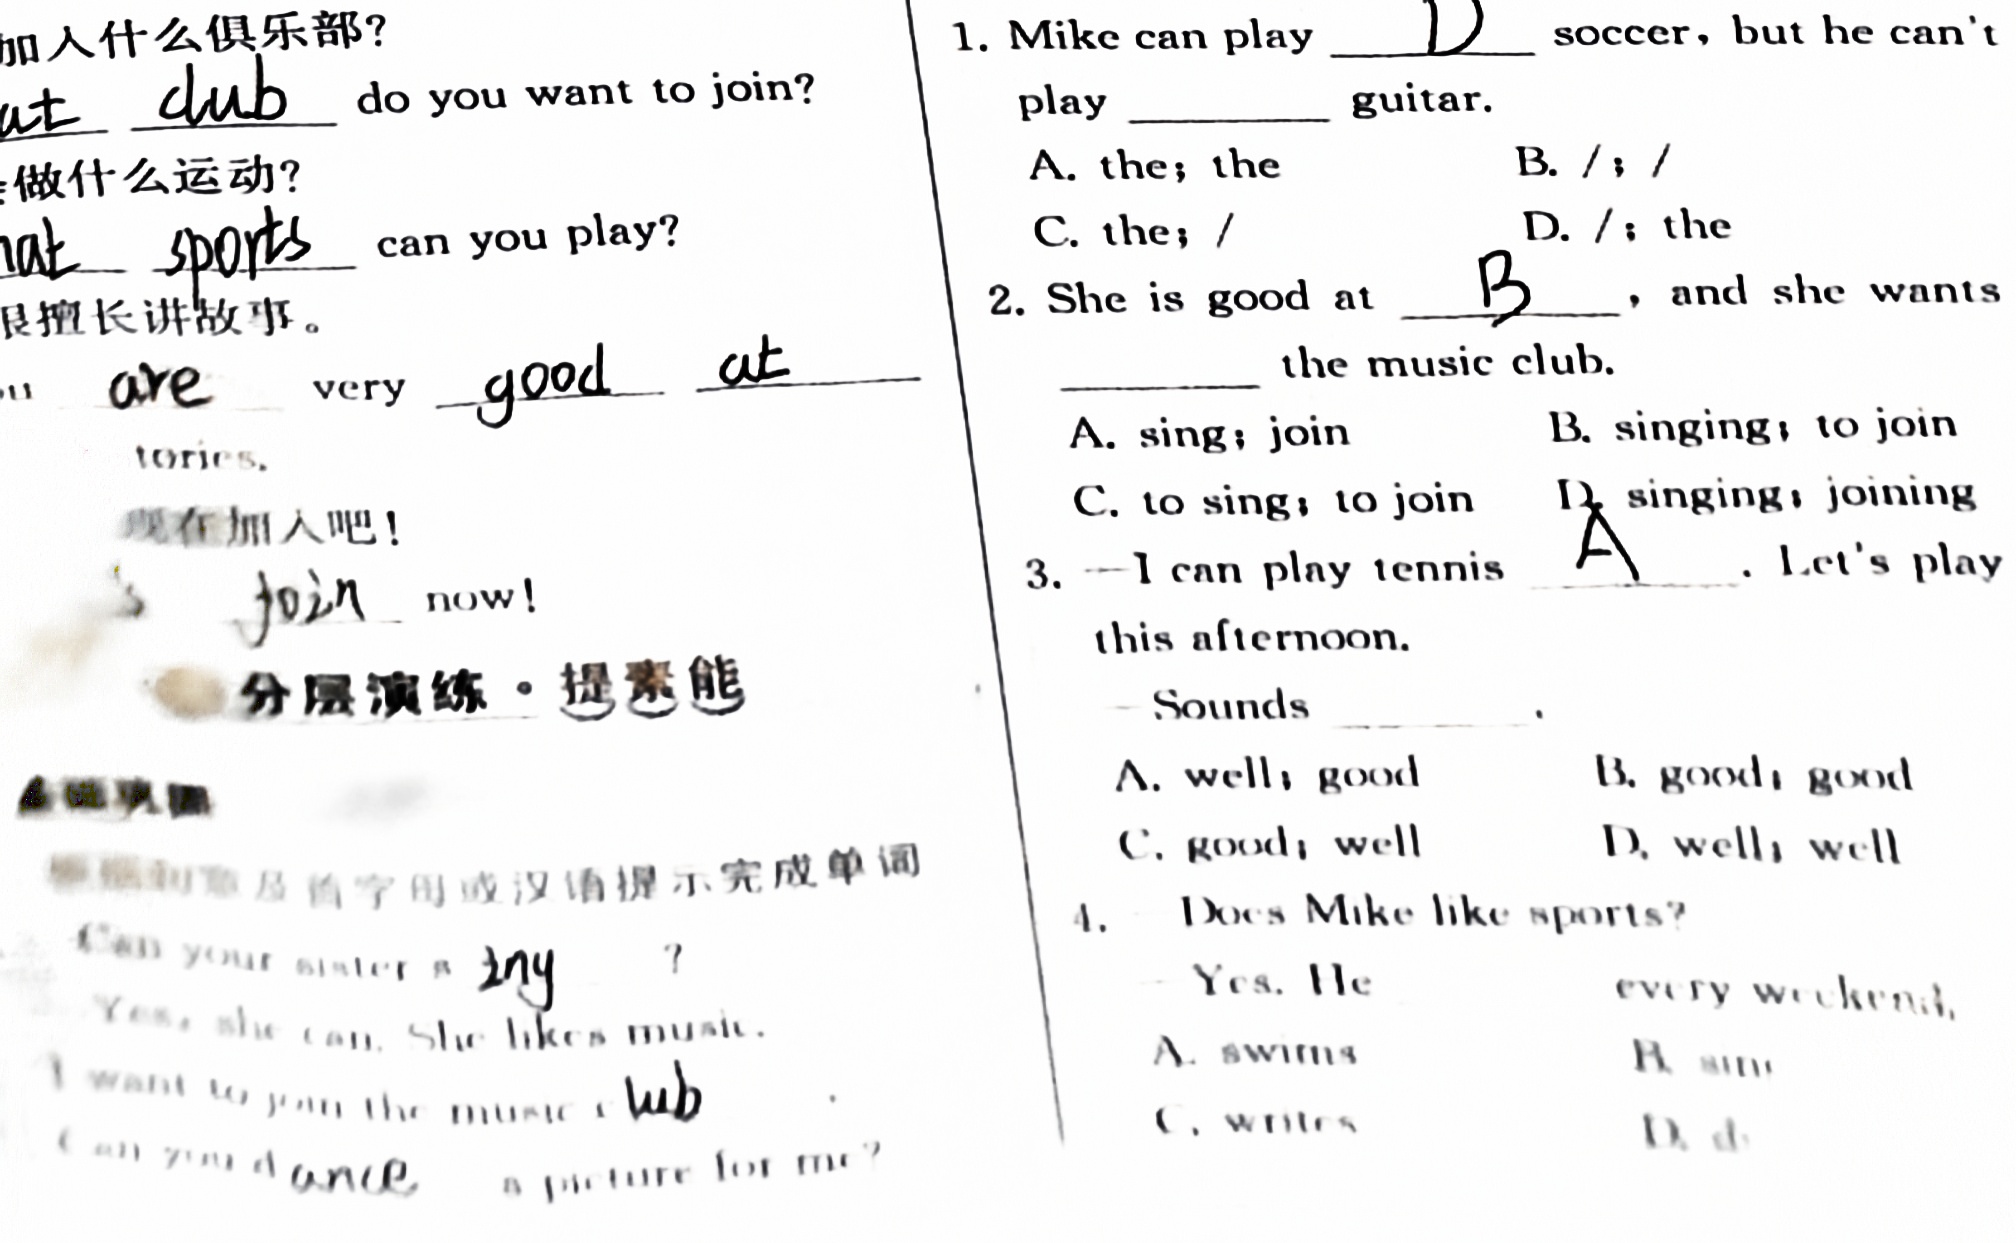 加入什么俱乐部?
at club do you want to join?
做什么运动?
hat sports can you play?
很擅长讲故事。
ou are very good at
tories.
现在加入吧!
's join now!
分层演练·提素能
及首字母或汉语提示完成单词
Can your sister s ing ?
Yes, she can. She likes music.
I want to join the music c lub .
Can you d ance a picture for me?
1. Mike can play D soccer, but he can't
play ______ guitar.
A. the; the B. /; /
C. the; / D. /; the
2. She is good at B , and she wants
______ the music club.
A. sing; join B. singing; to join
C. to sing; to join D. singing; joining
3. —I can play tennis A . Let's play
this afternoon.
—Sounds ______.
A. well; good B. good; good
C. good; well D. well; well
4. —Does Mike like sports?
—Yes. He every weekend.
A. swims B.
C. writes D. d